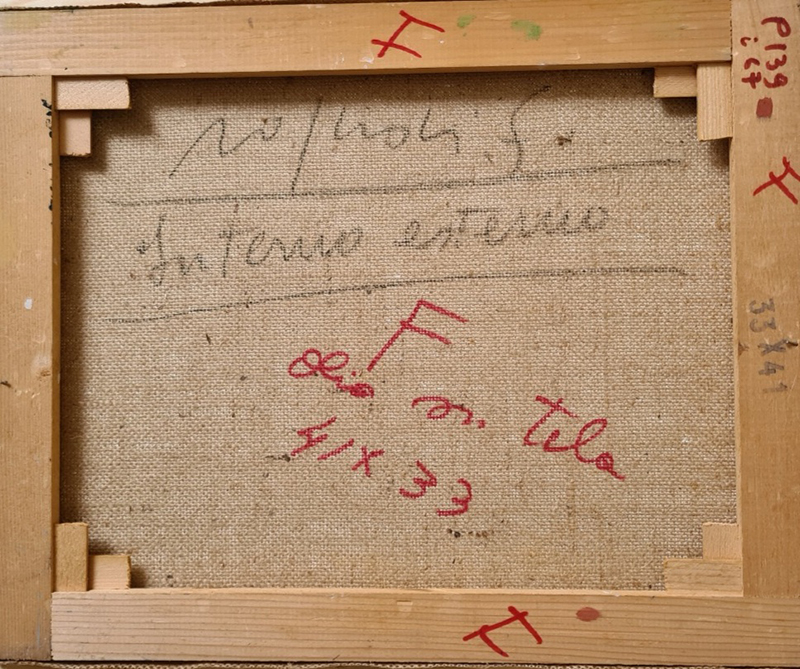 F
P139
i 67
Interno esterno
F
olio su tela
41 X 33
F
33 X 41
F